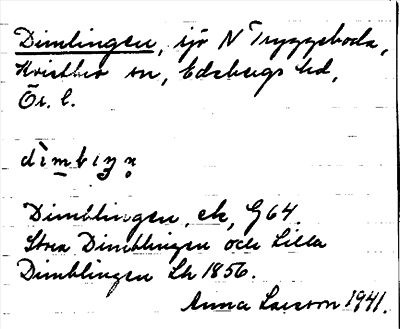 Dimlingen, sjö N Tryggeboda,
Kvistbro sn, Edsbergs hd,
Ör. l.
Dimblingen, ek, G64.
Stora Dimblingen och Lilla
Dimblingen Lk 1856.
Anna Larsson 1941.